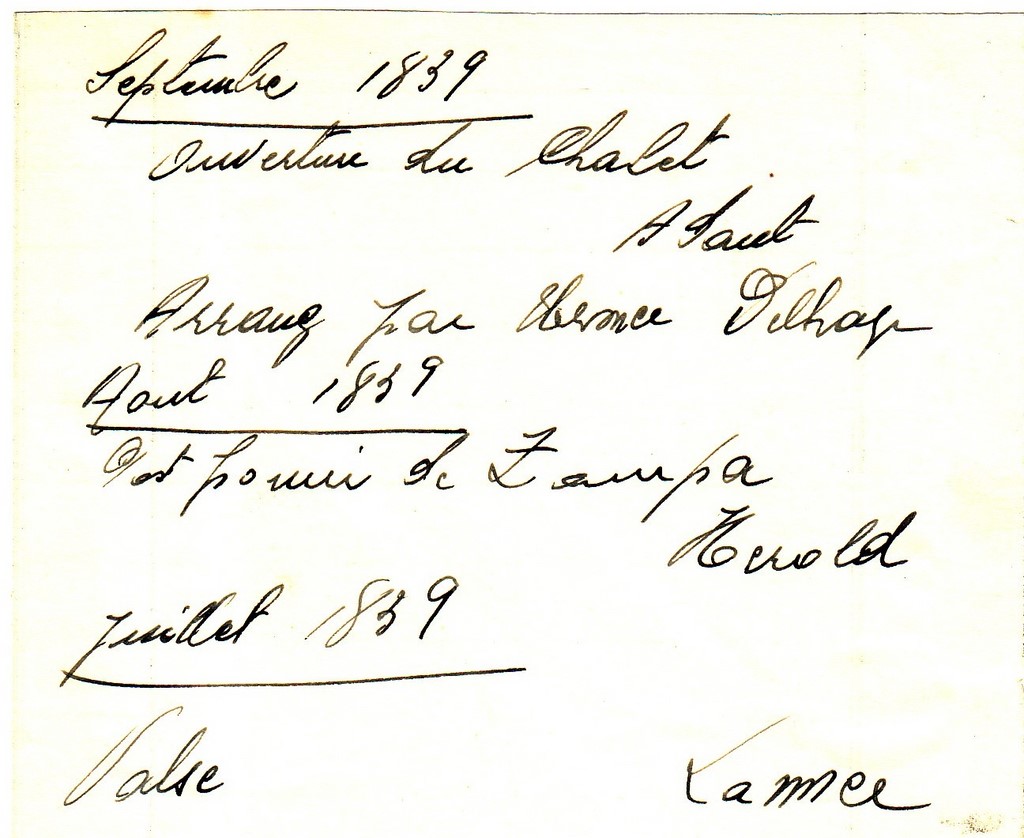 Septembre 1839
Ouverture du Chalet
A
Arrang par
Aout 1839
Pot pourri de Zampa
Herold
Juillet 1839
Valse Lannce